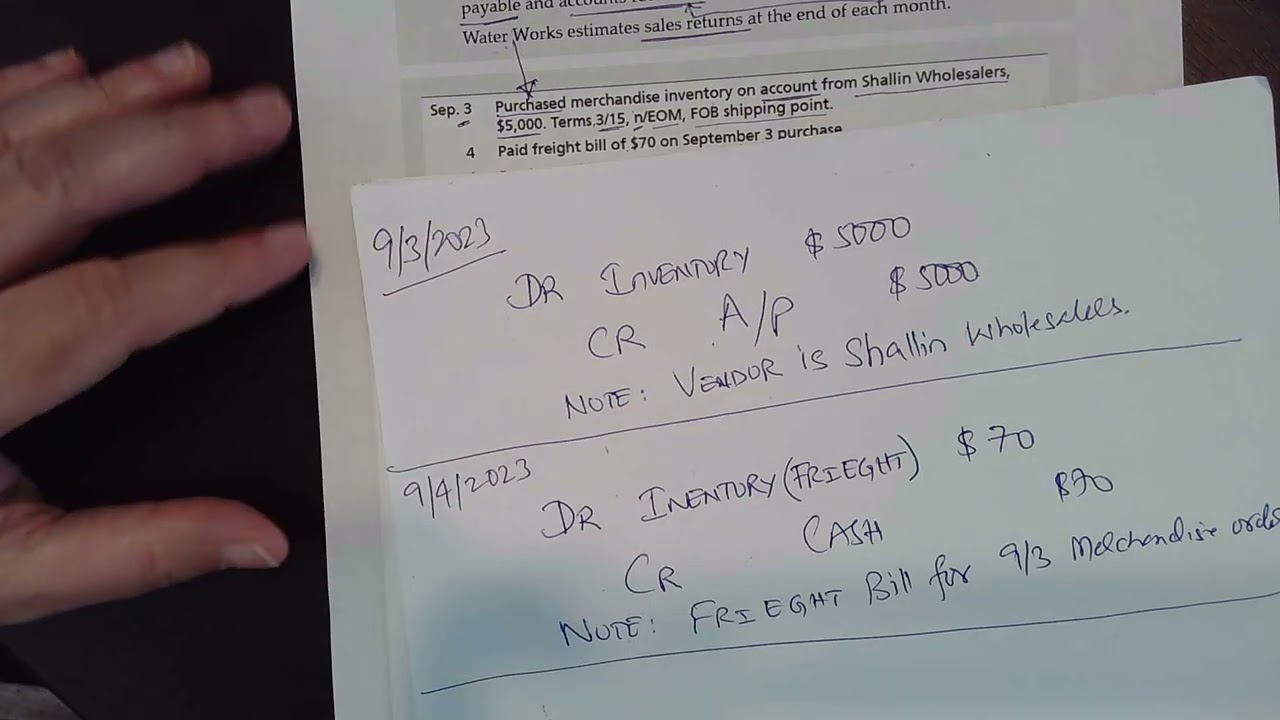 payable and
Water Works estimates sales returns at the end of each month.
Sep. 3 Purchased merchandise inventory on account from Shallin Wholesalers,
$5,000. Terms 3/15, n/EOM, FOB shipping point.
4 Paid freight bill of $70 on September 3 purchase
9/3/2023
DR INVENTORY $ 5000
CR A/P $ 5000
NOTE: VENDOR is Shallin Wholesalers.
9/4/2023
DR INENTORY (FRIEGHT) $ 70
CR CASH $70
NOTE: FRIEGHT Bill for 9/3 Merchandise order